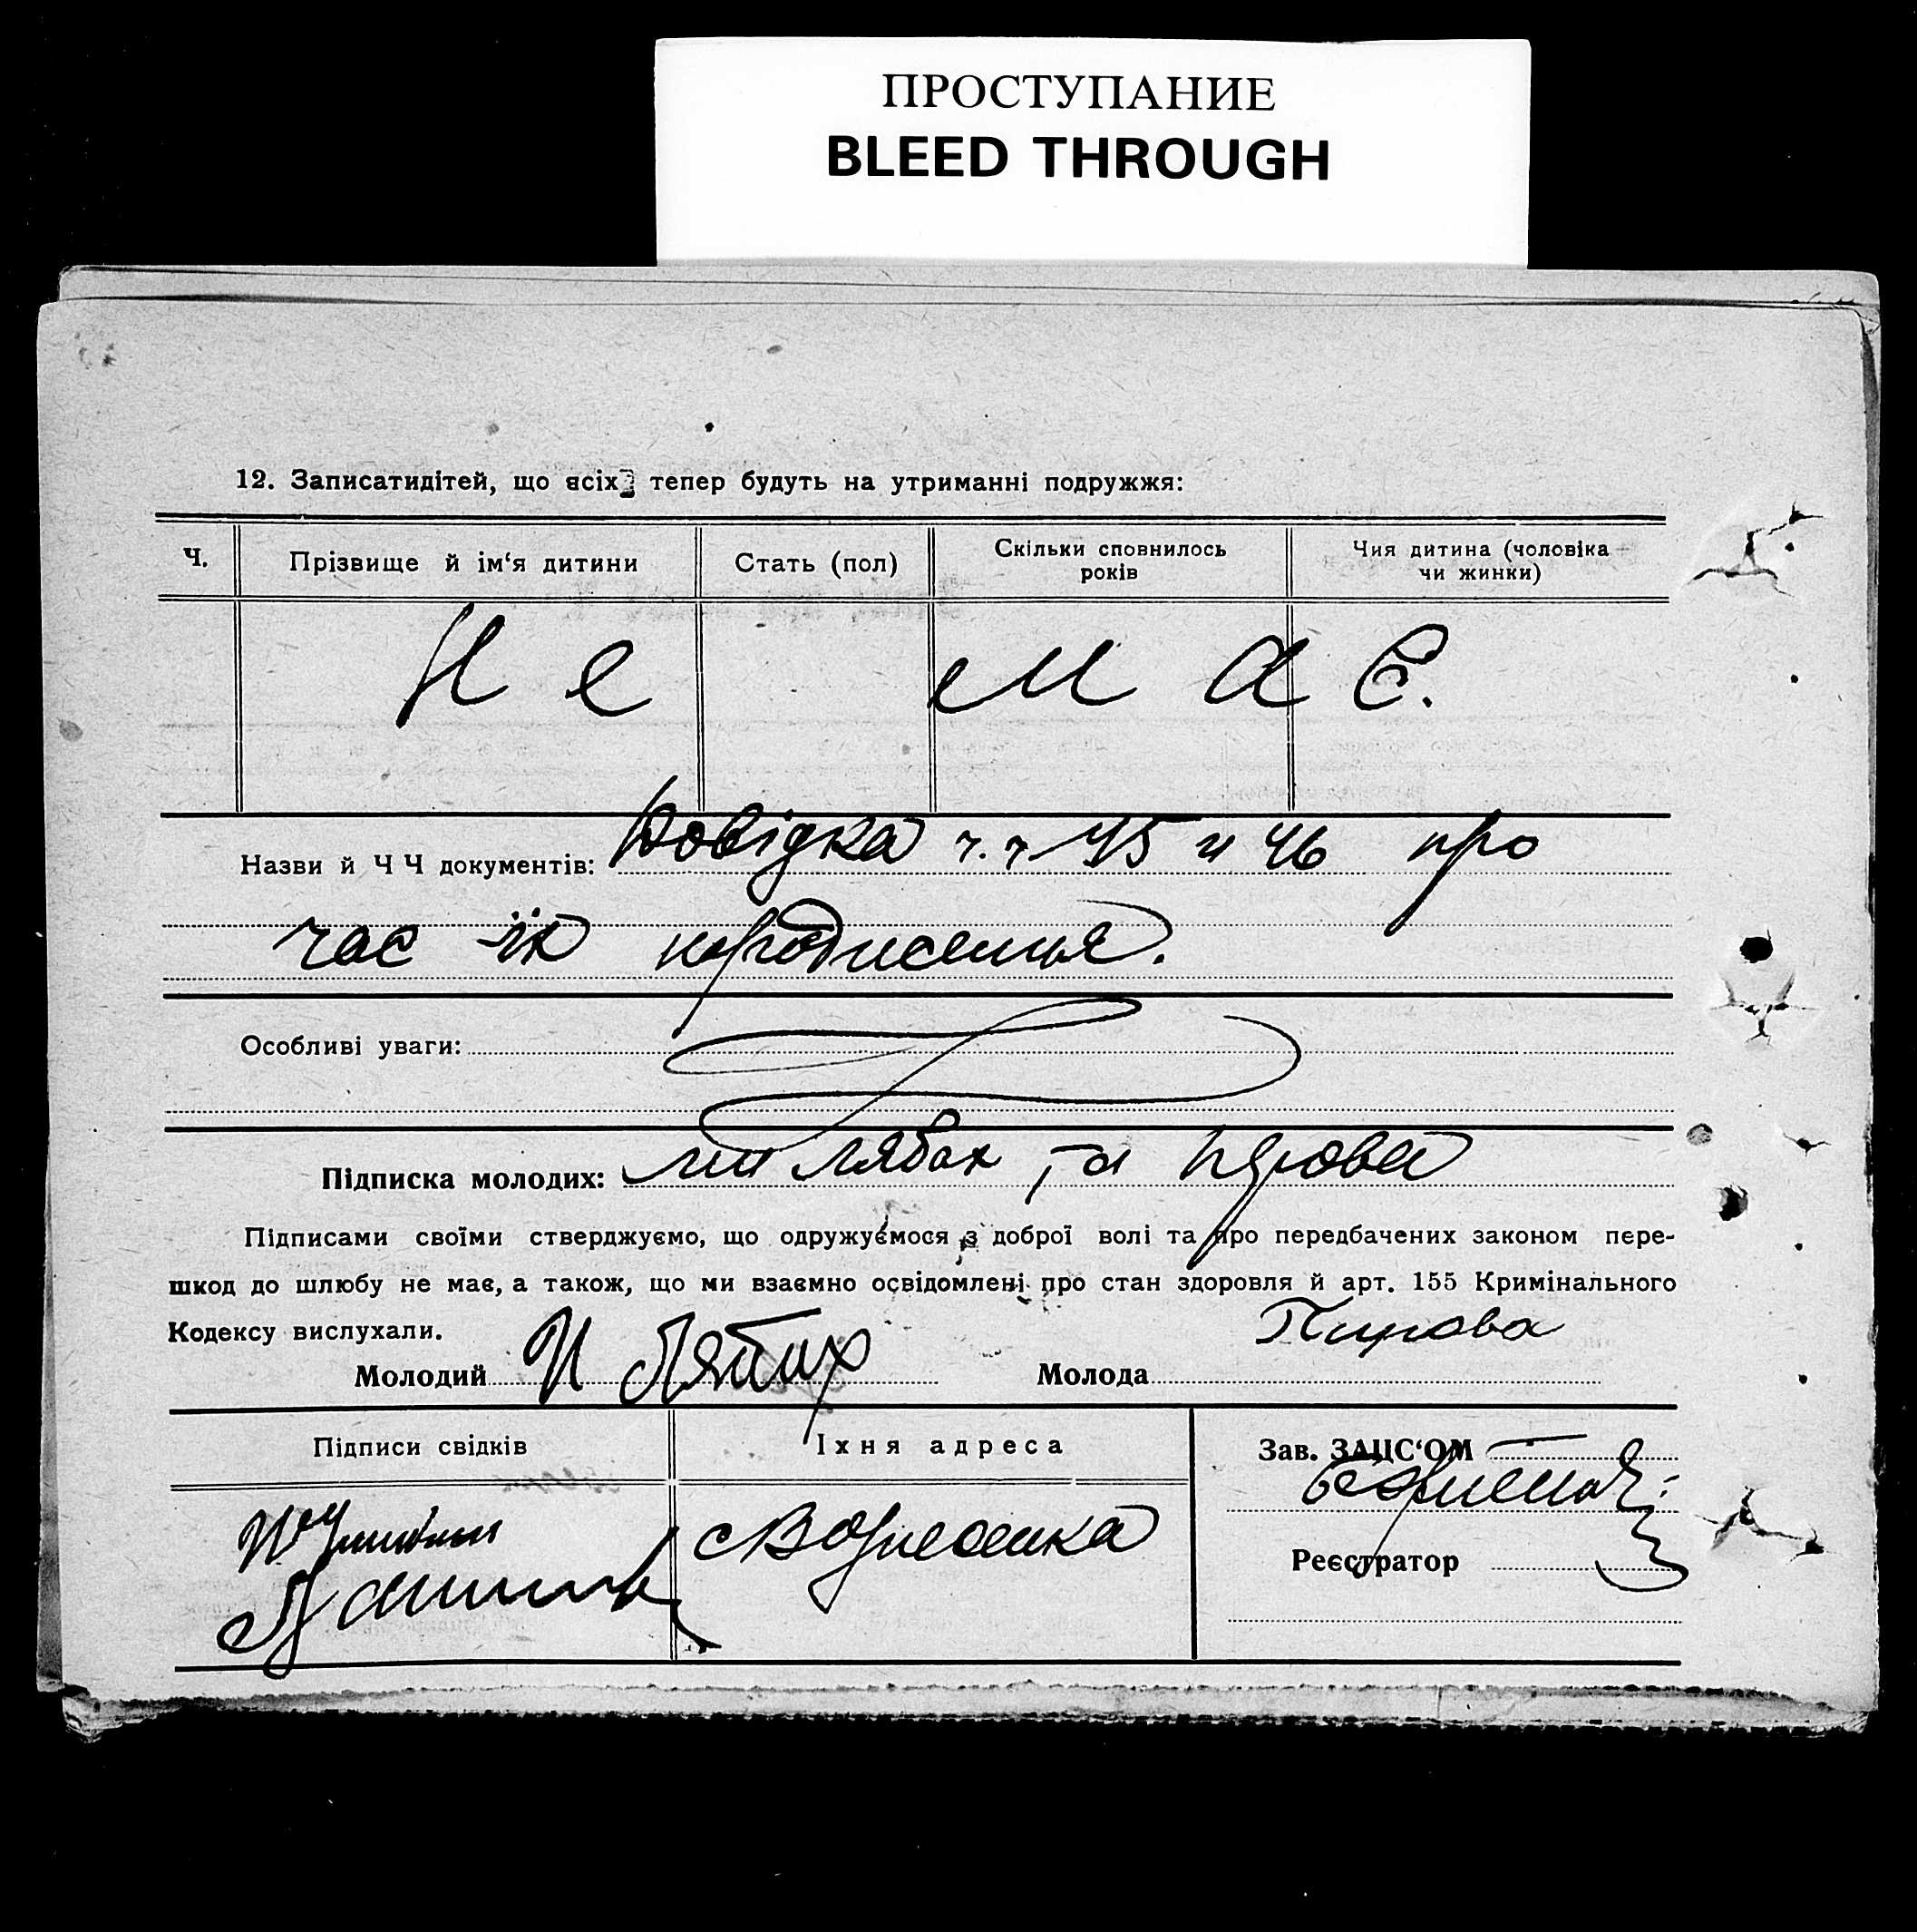 ПРОСТУПАНИЕ
BLEED THROUGH
12. Записатидітей, що всіх тепер будуть на утриманні подружжя:
Ч. Прізвище й ім‘я дитини Стать (пол) Скільки сповнилось років Чия дитина (чоловіка чи жинки)
Не має.
Назви й Ч Ч документів: Довідка ч. ч 45 и 46 про
час їх народження.
Особливі уваги:
Підписка молодих: ми Лябах та
Підписами своїми стверджуємо, що одружуємося з доброї волі та про передбачених законом пере-
шкод до шлюбу не має, а також, що ми взаємно освідомлені про стан здоровля й арт. 155 Кримінального
Кодексу вислухали.
Молодий И Лябах Молода
Підписи свідків Їхня адреса Зав. ЗАЦС‘ОМ
с Вознесенка
Реєстратор